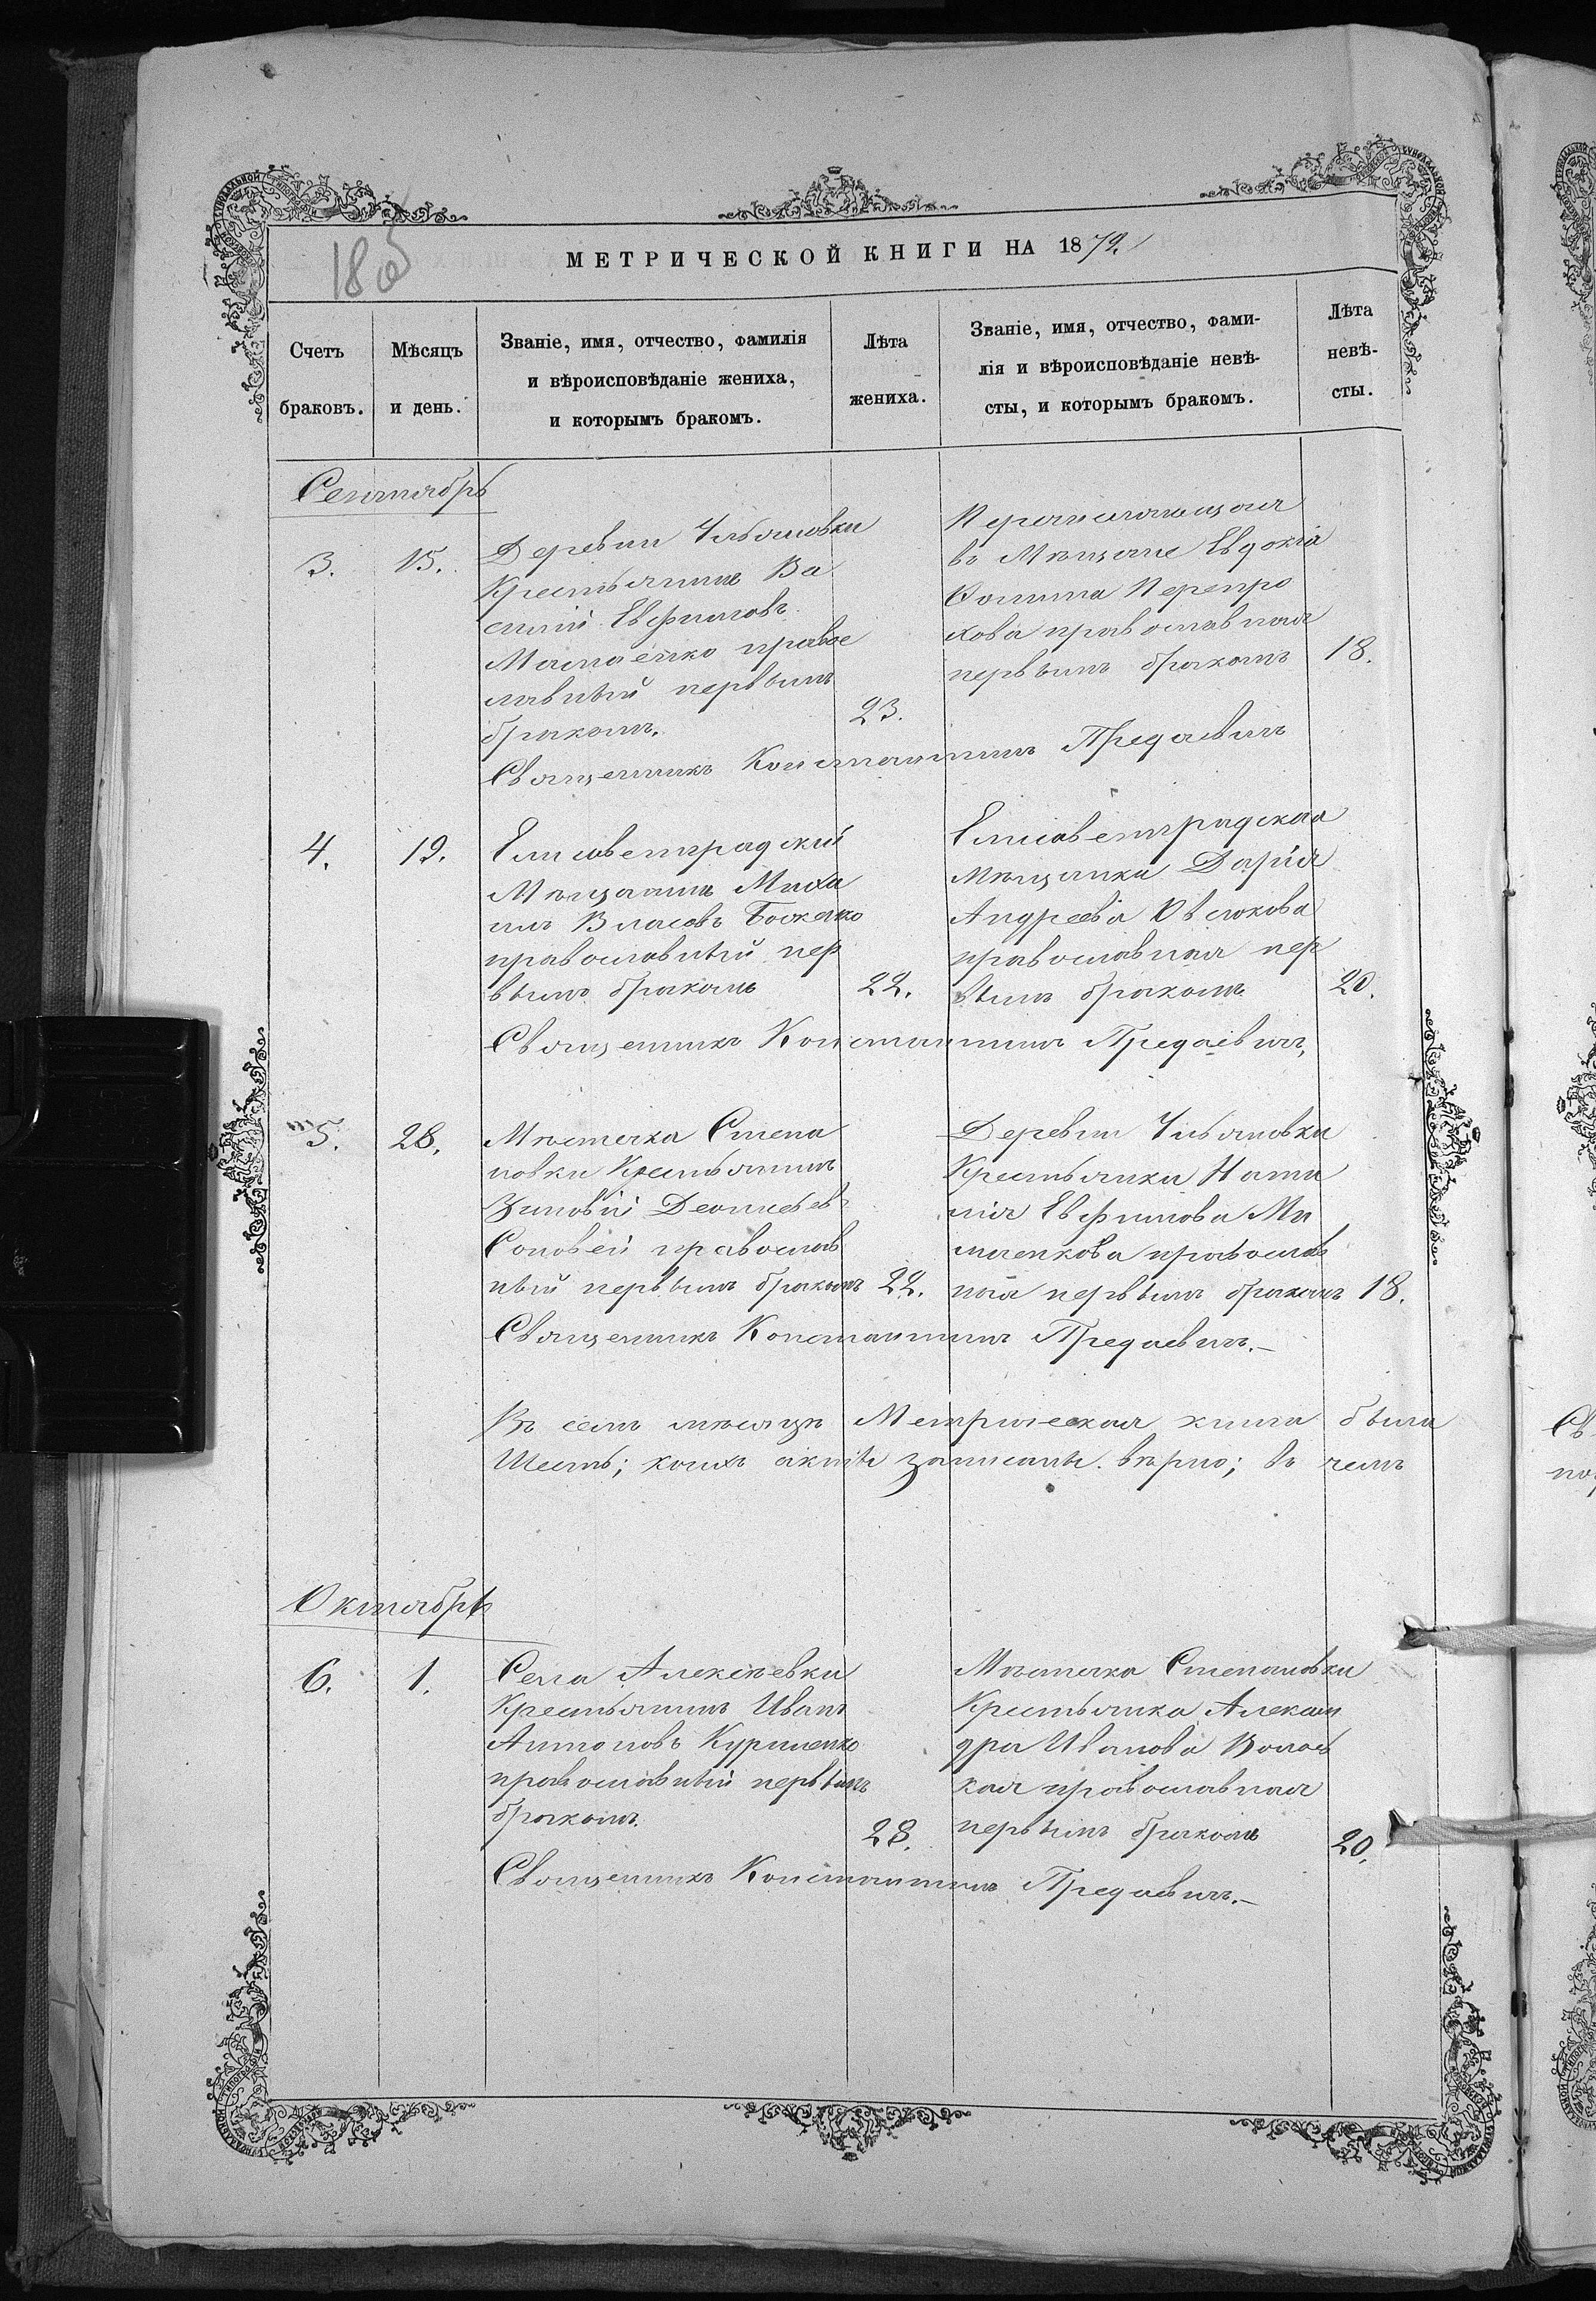 МЕТРИЧЕСКОЙ КНИГИ НА 1879.
Счетъ браковъ.
Мѣсяцъ и день.
Званіе, имя, отчество, фамилія
и вѣроисповѣданіе жениха,
и которымъ бракомъ.
Лѣта
жениха.
Званіе, имя, отчество, фами-
лія и вѣроисповѣданіе невѣ-
сты, и которымъ бракомъ.
Лѣта
невѣ-
сты.
Сентябрь
3. 15.
Деревни Ульяновки
Крестьянинъ Ва
силій Евфимовъ
православный первымъ
бракомъ.
23.
въ Мѣщане Евдокія
Фомина Перепро
хова православная
первымъ бракомъ
18.
Священникъ Константинъ Предаевичъ
4. 19.
Елисаветградскій
Мѣщанинъ Миха
илъ Власовъ
православный пер
вымъ бракомъ
22.
Елисаветградская
Мѣщанка Дарія
Андреева
православная пер
вымъ бракомъ
20.
Священникъ Константинъ Предаевичъ,
5. 28.
Мѣстечка Степа
новки Крестьянинъ
Зиновій
Соловей православ
ный первымъ бракомъ
22.
Деревни Ульяновки
Крестьянка Ната
лія Евфимова Ми
щенкова православ
ная первымъ бракомъ
18.
Священникъ Константинъ Предаевичъ.—
Въ семъ мѣсяцѣ Метрическая книга
коихъ акты записаны вѣрно; въ чемъ
Октябрь
6. 1.
Села Алексѣевки
Крестьянинъ Иванъ
Антоновъ Куриленко
православный первымъ
бракомъ.
28.
Мѣстечка Степановки
Крестьянка Алексан
дра Иванова Волос
кая православная
первымъ бракомъ
20.
Священникъ Константинъ Предаевичъ.—